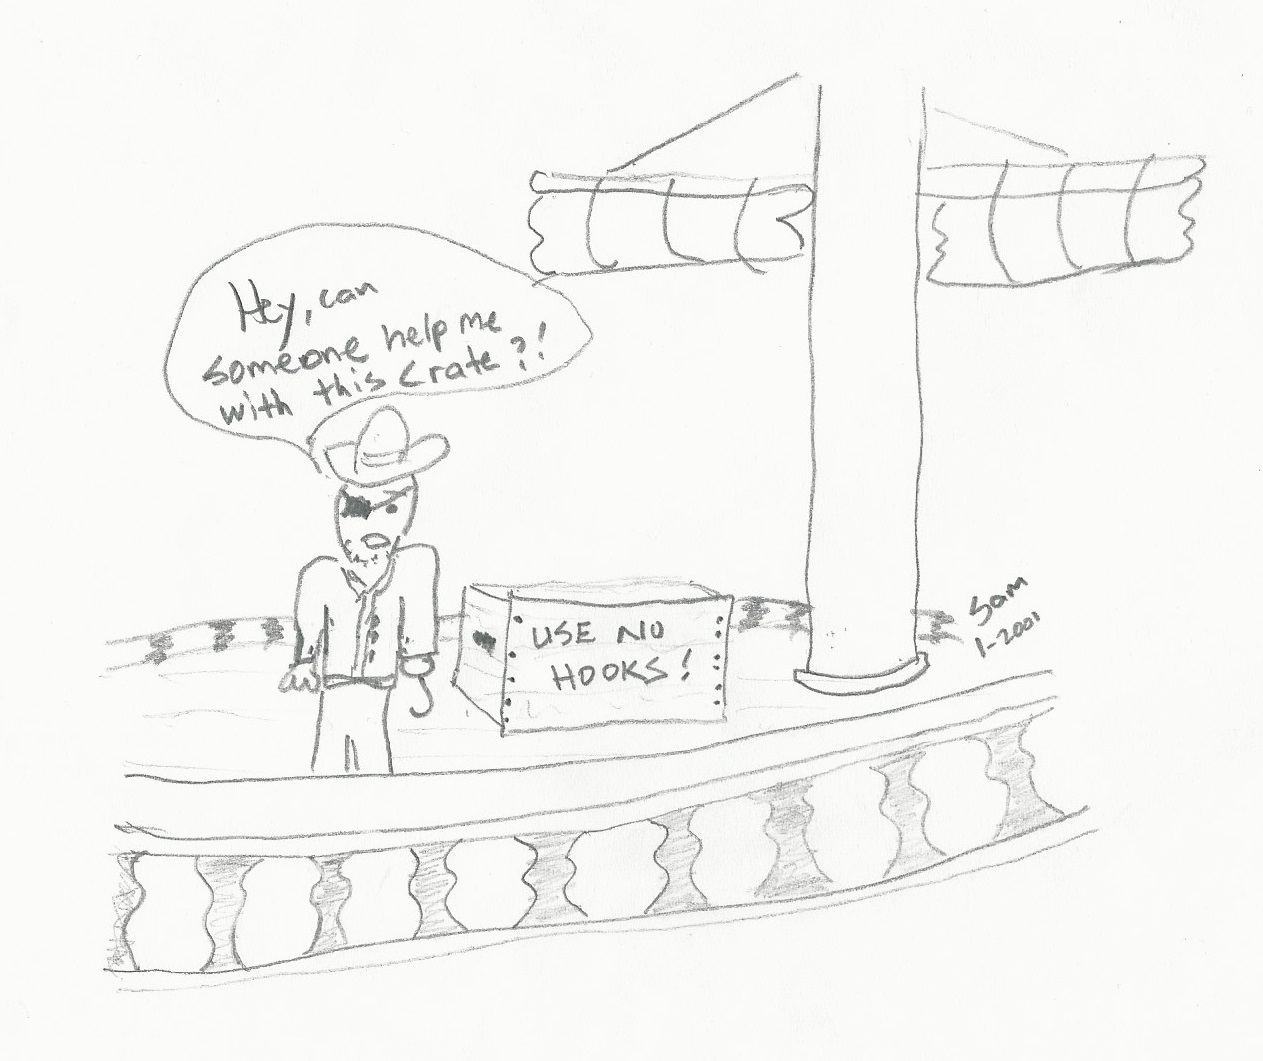 Hey, can
someone help me
with this crate?!
USE NO
HOOKS!
Sam
1-2001